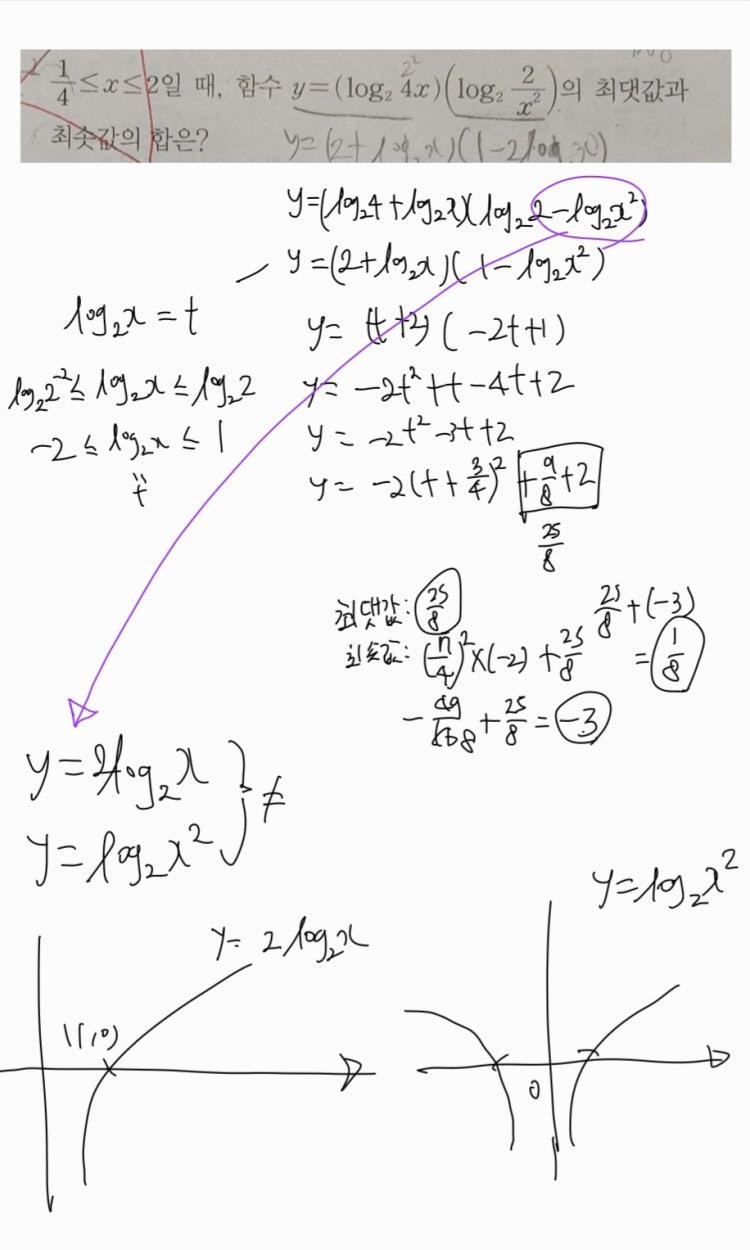 1/4≤x≤2일 때, 함수 y=(log₂ 4x)(log₂ 2/x²)의 최댓값과
2²
최솟값의 합은?
y=(2+log₂x)(1-2log₂x)
y=(log₂4+log₂x)(log₂2-log₂x²)
y=(2+log₂x)(1-log₂x²)
log₂x=t
y=(t+2)(-2t+1)
log₂2⁻²≤log₂x≤log₂2
y=-2t²+t-4t+2
-2≤log₂x≤1
y=-2t²-3t+2
t
y=-2(t+3/4)²+9/8+2
25/8
최댓값: 25/8
25/8+(-3)
최솟값: ( /4)²×(-2)+25/8
=1/8
-49/8+25/8=-3
y=2log₂x
≠
y=log₂x²
y=log₂x²
y=2log₂x
(1,0)
0